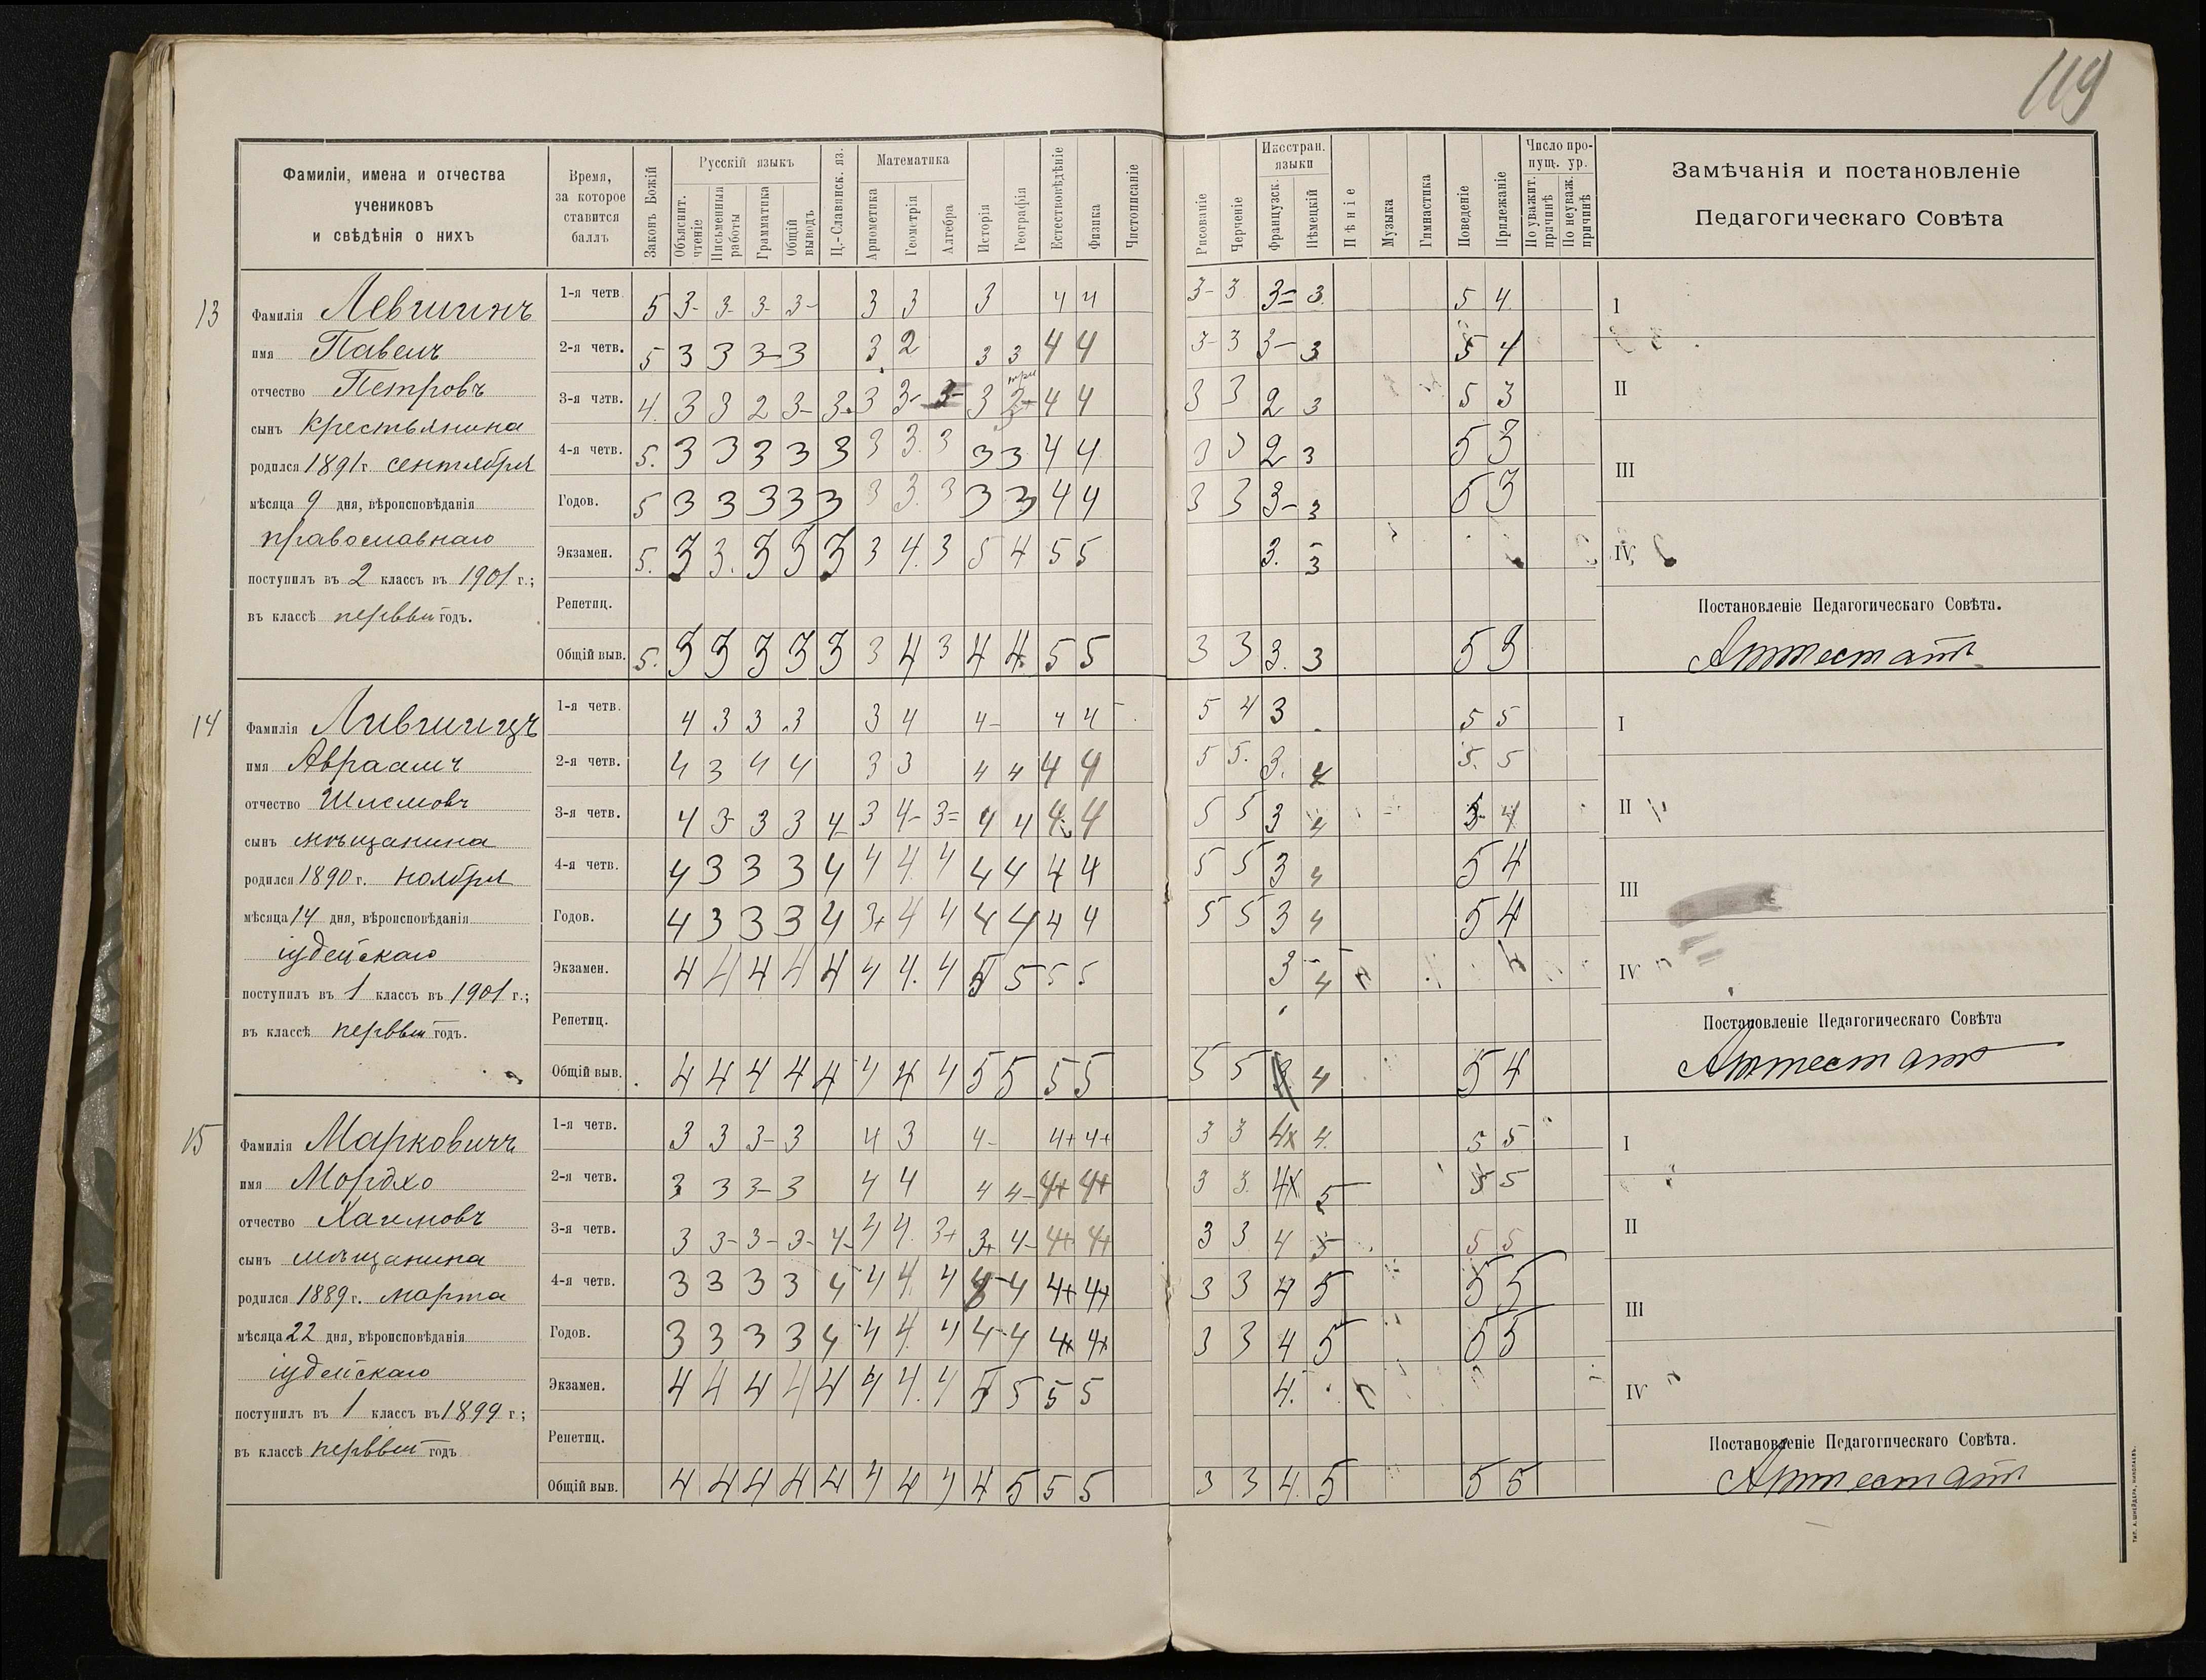 119
Фамиліи, имена и отчества
учениковъ
и свѣдѣнія о нихъ
Время,
за которое
ставится
баллъ.
Законъ Божій
Русскій языкъ
Объяснит.
чтеніе
Письменныя
работы
Грамматика
Общій
выводъ
Ц.-Славянск. яз.
Математика
Ариѳметика
Геометрія
Алгебра
Исторія
Географія
Естествовѣдѣніе
Физика
Чистописаніе
Рисованіе
Черченіе
Иностран.
языки
Французск.
Нѣмецкій
Пѣніе
Музыка
Гимнастика
Поведеніе
Прилежаніе
Число про-
пущ. ур.
По уважит.
причинѣ
По неуваж.
причинѣ
Замѣчанія и постановленіе
Педагогическаго Совѣта
13
Фамилія Левшинъ
имя Павелъ
отчество Петровъ
сынъ крестьянина
родился 1891 г. сентября
мѣсяца 9 дня, вѣроисповѣданія
православнаго
поступилъ въ 2 классъ въ 1901 г.;
въ классѣ первый годъ.
1-я четв. 5 3- 3- 3- 3- 3 3 3 4 4 3- 3 3= 3. 5 4.
2-я четв. 5 3 3 3- 3 3 2 3 3 4 4 3- 3 3- 3 5 4
3-я четв. 4. 3 3 2 3- 3. 3 3- 3- 3 три 4 4 3 3 2 3 5 3
4-я четв. 5. 3 3 3 3 3 3 3. 3 3 3 4 4 3 3 2 3 5 3
Годов. 5 3 3 3 3 3 3 3. 3 3 3 4 4 3 3 3- 3 5 3
Экзамен. 5. 3 3. 3 3 3 3 4. 3 5 4 5 5 3. 3
Репетиц.
Общій выв. 5. 3 3 3 3 3 3 4 3 4 4 5 5 3 3 3. 3 5 3
I
II
III
IV
Постановленіе Педагогическаго Совѣта.
Аттестатъ
14
Фамилія Лившицъ
имя Авраамъ
отчество Шлемовъ
сынъ мѣщанина
родился 1890 г. ноября
мѣсяца 14 дня, вѣроисповѣданія
іудейскаго
поступилъ въ 1 классъ въ 1901 г.;
въ классѣ первый годъ.
1-я четв. 4 3 3 3 3 4 4- 4 4 5 4 3 5 5
2-я четв. 4 3 4 4 3 3 4 4 4 4 5 5. 3. 4 5. 5
3-я четв. 4 3- 3 3 4 3 4- 3= 4 4 4 4 5 5 3 4 4
4-я четв. 4 3 3 3 4 4 4. 4 4 4 4 4 5 5 3 4 5 4
Годов. 4 3 3 3 4 3+ 4 4 4 4 4 4 5 5 3 4 5 4
Экзамен. 4 4 4 4 4 4 4. 4 5 5 5 5 3 4
Репетиц.
Общій выв. 4 4 4 4 4 4 4 4 5 5 5 5 5 5 4 5 4
I
II
III
IV
Постановленіе Педагогическаго Совѣта
Аттестатъ
15
Фамилія Марковичъ
имя Мордхо
отчество Хаимовъ
сынъ мѣщанина
родился 1889 г. марта
мѣсяца 22 дня, вѣроисповѣданія
іудейскаго
поступилъ въ 1 классъ въ 1899 г.;
въ классѣ первый годъ
1-я четв. 3 3 3- 3 4 3 4- 4+ 4+ 3 3 4+ 4. 5 5
2-я четв. 3 3 3- 3 4 4 4 4- 4+ 4+ 3 3. 4+ 5 5 5
3-я четв. 3 3- 3- 3- 4- 4 4. 3+ 3+ 4- 4+ 4+ 3 3 4 5 5 5
4-я четв. 3 3 3 3 4 4 4. 4 4 4+ 4+ 3 3 4 5 5 5
Годов. 3 3 3 3 4 4 4. 4 4- 4 4+ 4+ 3 3 4 5 5 5
Экзамен. 4 4 4 4 4 4 4. 4 5 5 5 5 4.
Репетиц.
Общій выв. 4 4 4 4 4 4 4 4 4 5 5 5 3 3 4. 5 5 5
I
II
III
IV
Постановленіе Педагогическаго Совѣта.
Аттестатъ
ТИП. А. ШНЕЙДЕРА, НИКОЛАЕВЪ.